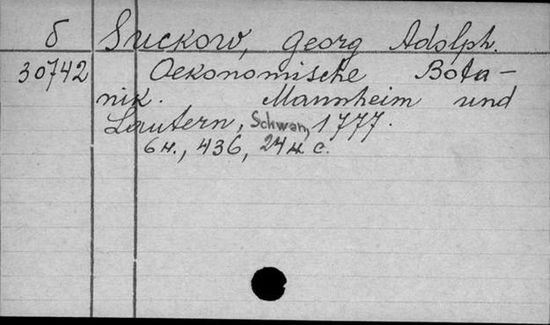 б Suckow, Georg Adolph.
30742 Oekonomische Bota-
nik. Mannheim und
Lautern, Schwan, 1777.
6 н., 436, 24 н. с.